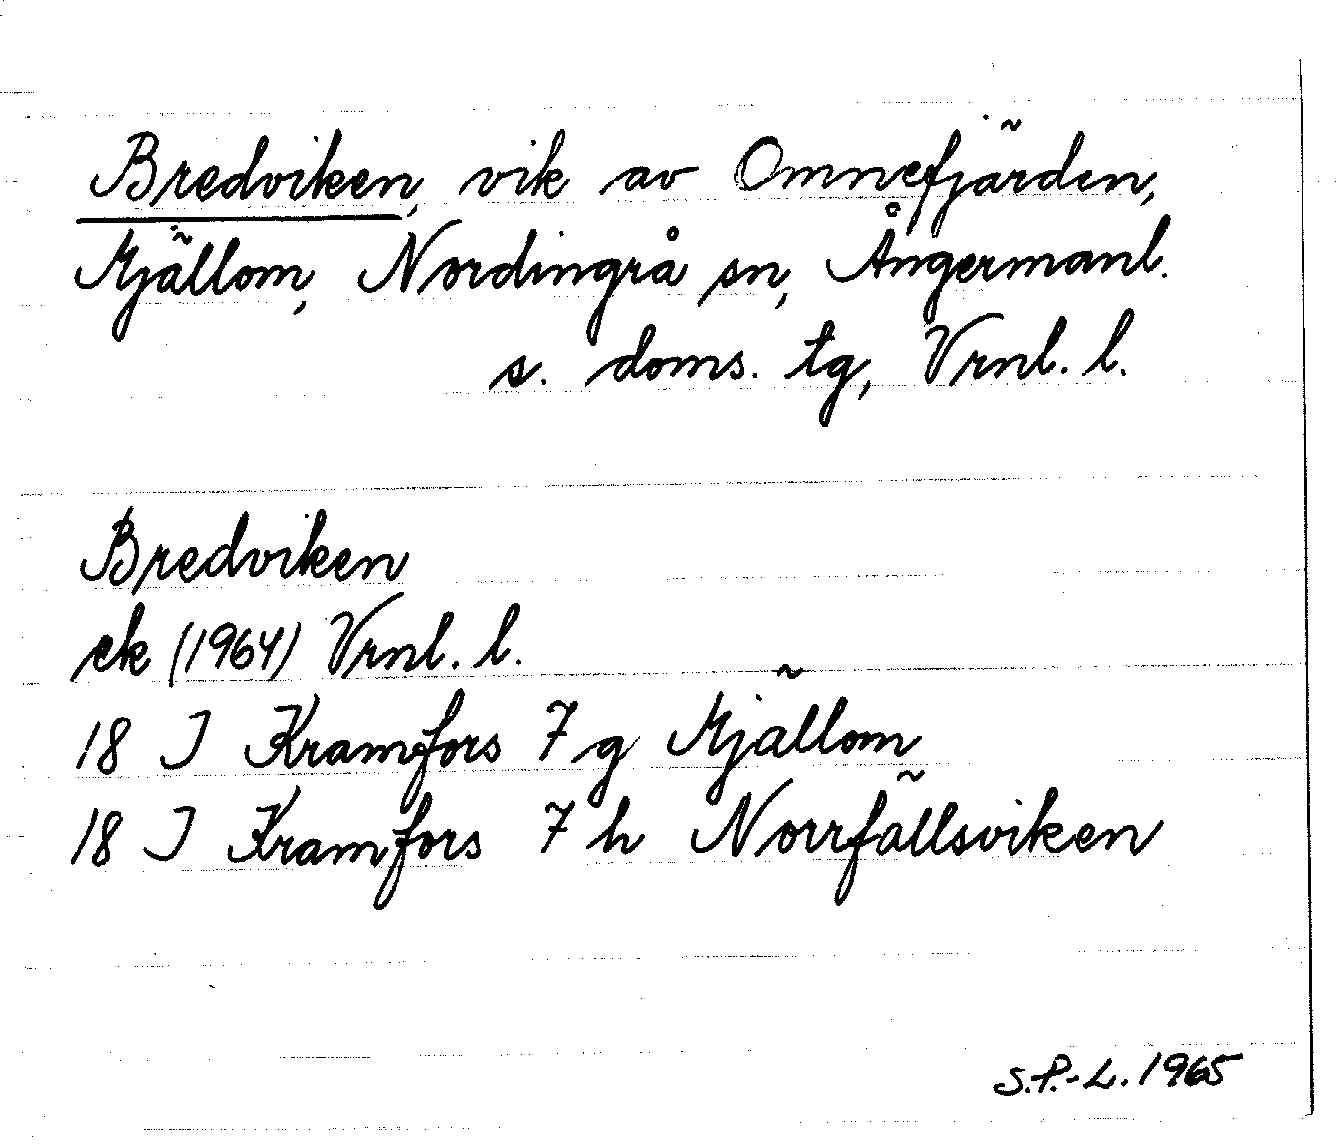 Bredviken, vik av Omnefjärden,
Mjällom, Nordingrå sn, Ångermanl.
s. doms. tg, Vrnl. l.
Bredviken
ek (1964) Vrnl. l.
18 I Kramfors 7 g Mjällom
18 I Kramfors 7 h Norrfällsviken
S.P.-L. 1965